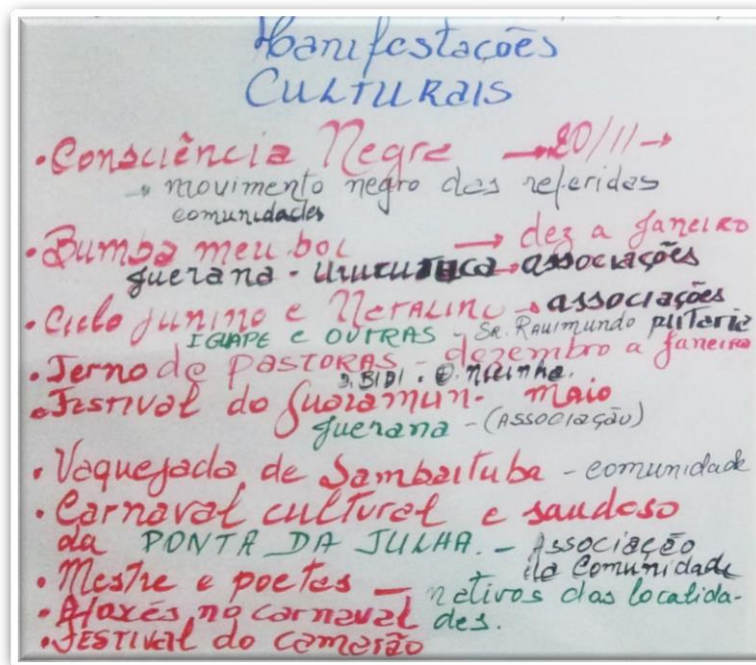 Manifestações
CULTURAIS
• Consciência Negra → 20/11 →
→ movimento negro das referidas
comunidades
• Bumba meu boi → dez a Janeiro
Juerana - URUCUTUCA → ASSOCIAÇÕES
• Ciclo Junino e NATALINO → ASSOCIAÇÕES
IGUAPE E OUTRAS - SR. RAUIMUNDO
• Terno de PASTORAS - dezembro a Janeiro
D. BIDI . D. Nainha.
• FESTIVAL do Guaiamun - maio
Juerana - (ASSOCIAÇÃO)
• Vaquejada de Sambaituba - comunidade
• Carnaval cultural e saudoso
da PONTA DA TULHA. - ASSOCIAÇÃO
da Comunidade
• Mestre e poetas — nativos das localida-
• Afoxés no carnaval des.
• FESTIVAL do camarão